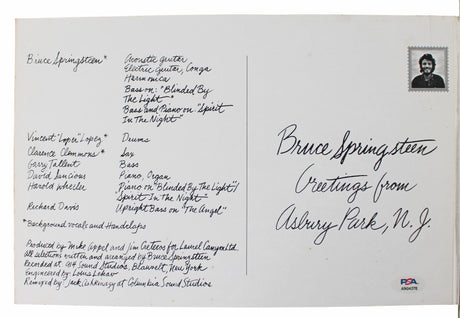 Bruce Springsteen*
Acoustic guitar
Electric Guitar, Conga
Harmonica
Bass on: "Blinded By
The Light"
Bass and Piano on "Spirit
In The Night"
Vincent "Loper" Lopez*
Drums
Clarence Clemmons*
Sax
Garry Tallent
Bass
David Sancious
Piano, Organ
Harold Wheeler
Piano on "Blinded By The Light"/
Spirit In The Night
Richard Davis
Upright Bass on "The Angel"
*Background vocals and Handclaps
Produced by Mike Appel and Jim Cretecos for Laurel Canyon Ltd.
All selections written and arranged by Bruce Springsteen
Recorded at 914 Sound Studios, Blauvelt, New York
Engineered by Louis Lahav
Remixed by: Jack Ashkinazy at Columbia Sound Studios
Bruce Springsteen
Greetings from
Asbury Park, N.J.
PSA